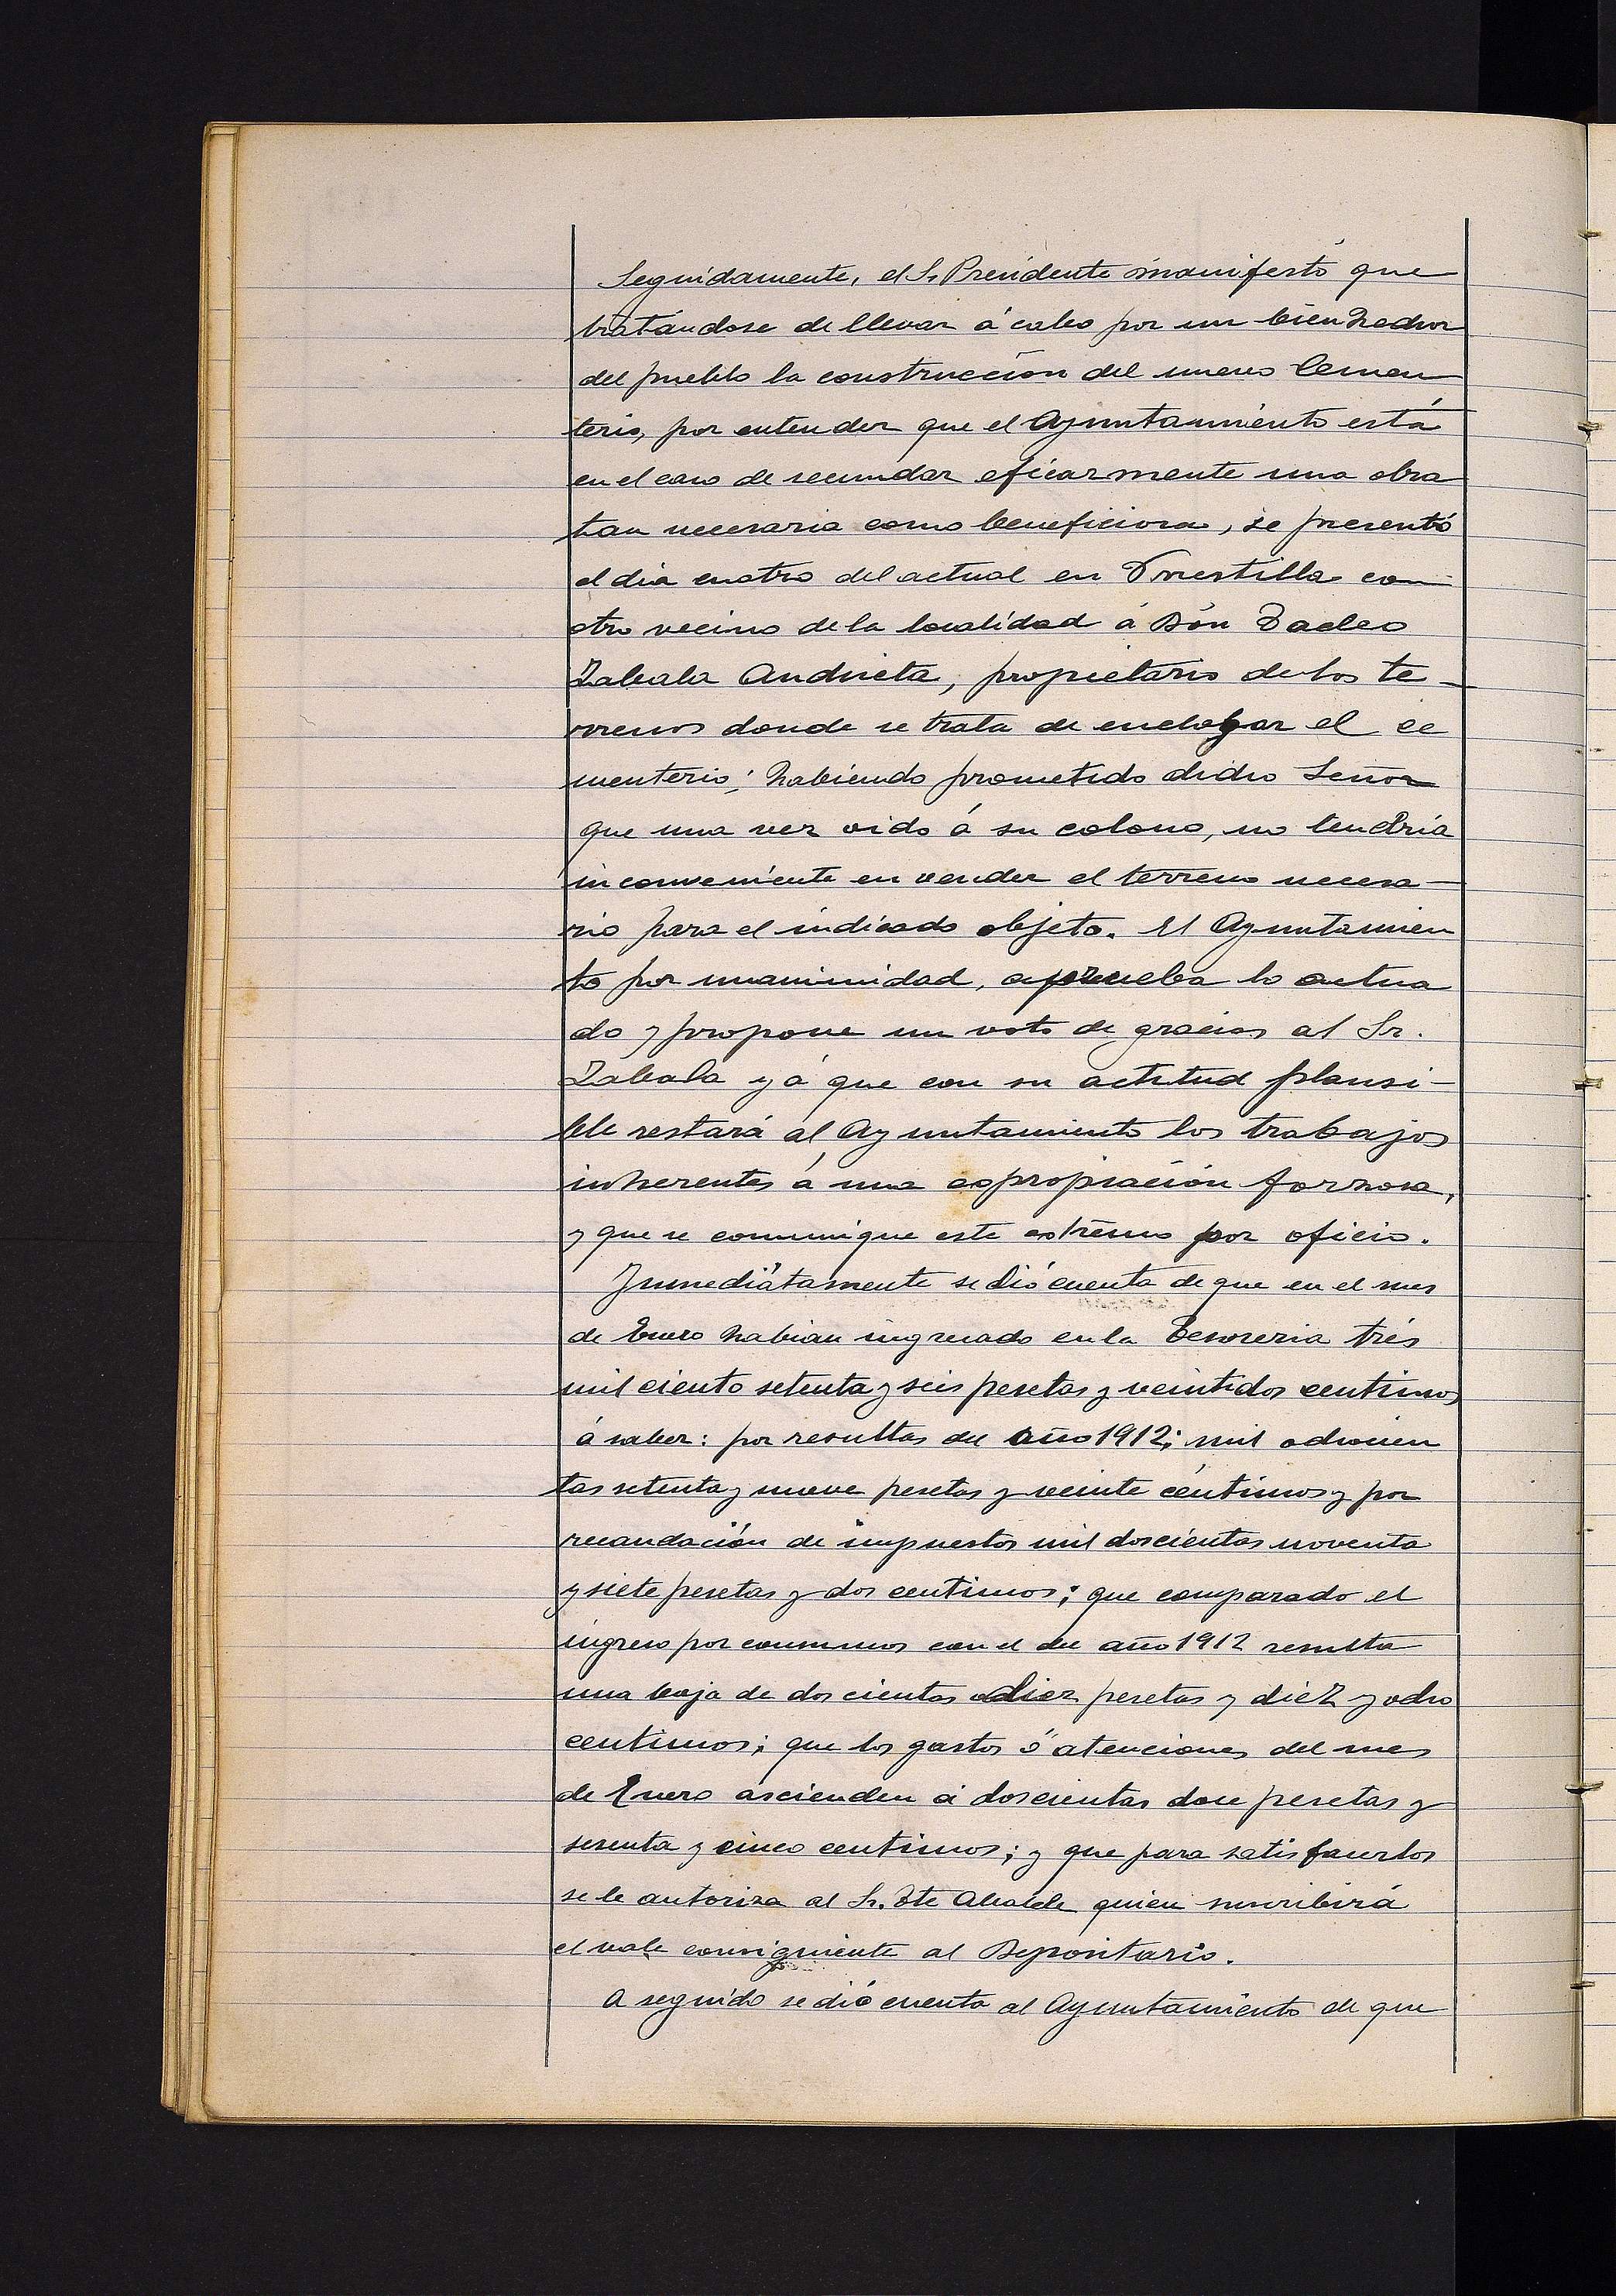 Seguidamente, el Sr Presidente manifestó que
tratándose de llevar á cabo por un bien hechor
del pueblo la construcción del nuevo Cemen
terio, por entender que el Ayuntamiento está
en el caso de secundar eficazmente una obra
tan necesaria como beneficiosa, se presentó
el dia cuatro del actual en con
otro vecino de la localidad á Dón Tadeo
Zabala Andrieta, propietario de los te-
rrenos donde se trata de el ce
menterio; habiendo prometido dicho Señor
que una vez oido á su colono, no tendría
inconveniente en vender el terreno necesa-
rio para el indicado objeto. El Ayuntamien
to por unanimidad, aprueba lo actua
do y propone un voto de gracias al Sr.
Zabala yá que con su actitud plausi-
ble restará al Ayuntamiento los trabajos
inherentes á una espropiación forzosa,
y que se comunique este estremo por oficio.
Inmediátamente se dió cuenta de que en el mes
de Enero habian ingresado en la Tesoreria trés
mil ciento setenta y seis pesetas y veintidos centimos
á saber: por resultas del año 1912; mil ochocien
tas setenta y nueve pesetas y veinte céntimos y por
recaudación de impuestos mil doscientas noventa
y siete pesetas y dos centimos; que comparado el
ingreso por consumos con el del año 1912 resulta
una baja de dos cientas diez pesetas y diez y ocho
centimos; que los gastos ó atenciones del mes
de Enero ascienden á doscientas doce pesetas y
sesenta y cinco centimos; y que para satisfacerlos
se le autoriza al Sr. Tte Alcalde quien suscribirá
el vale consiguiente al Depositario.
A seguido se dió cuenta al Ayuntamiento de que